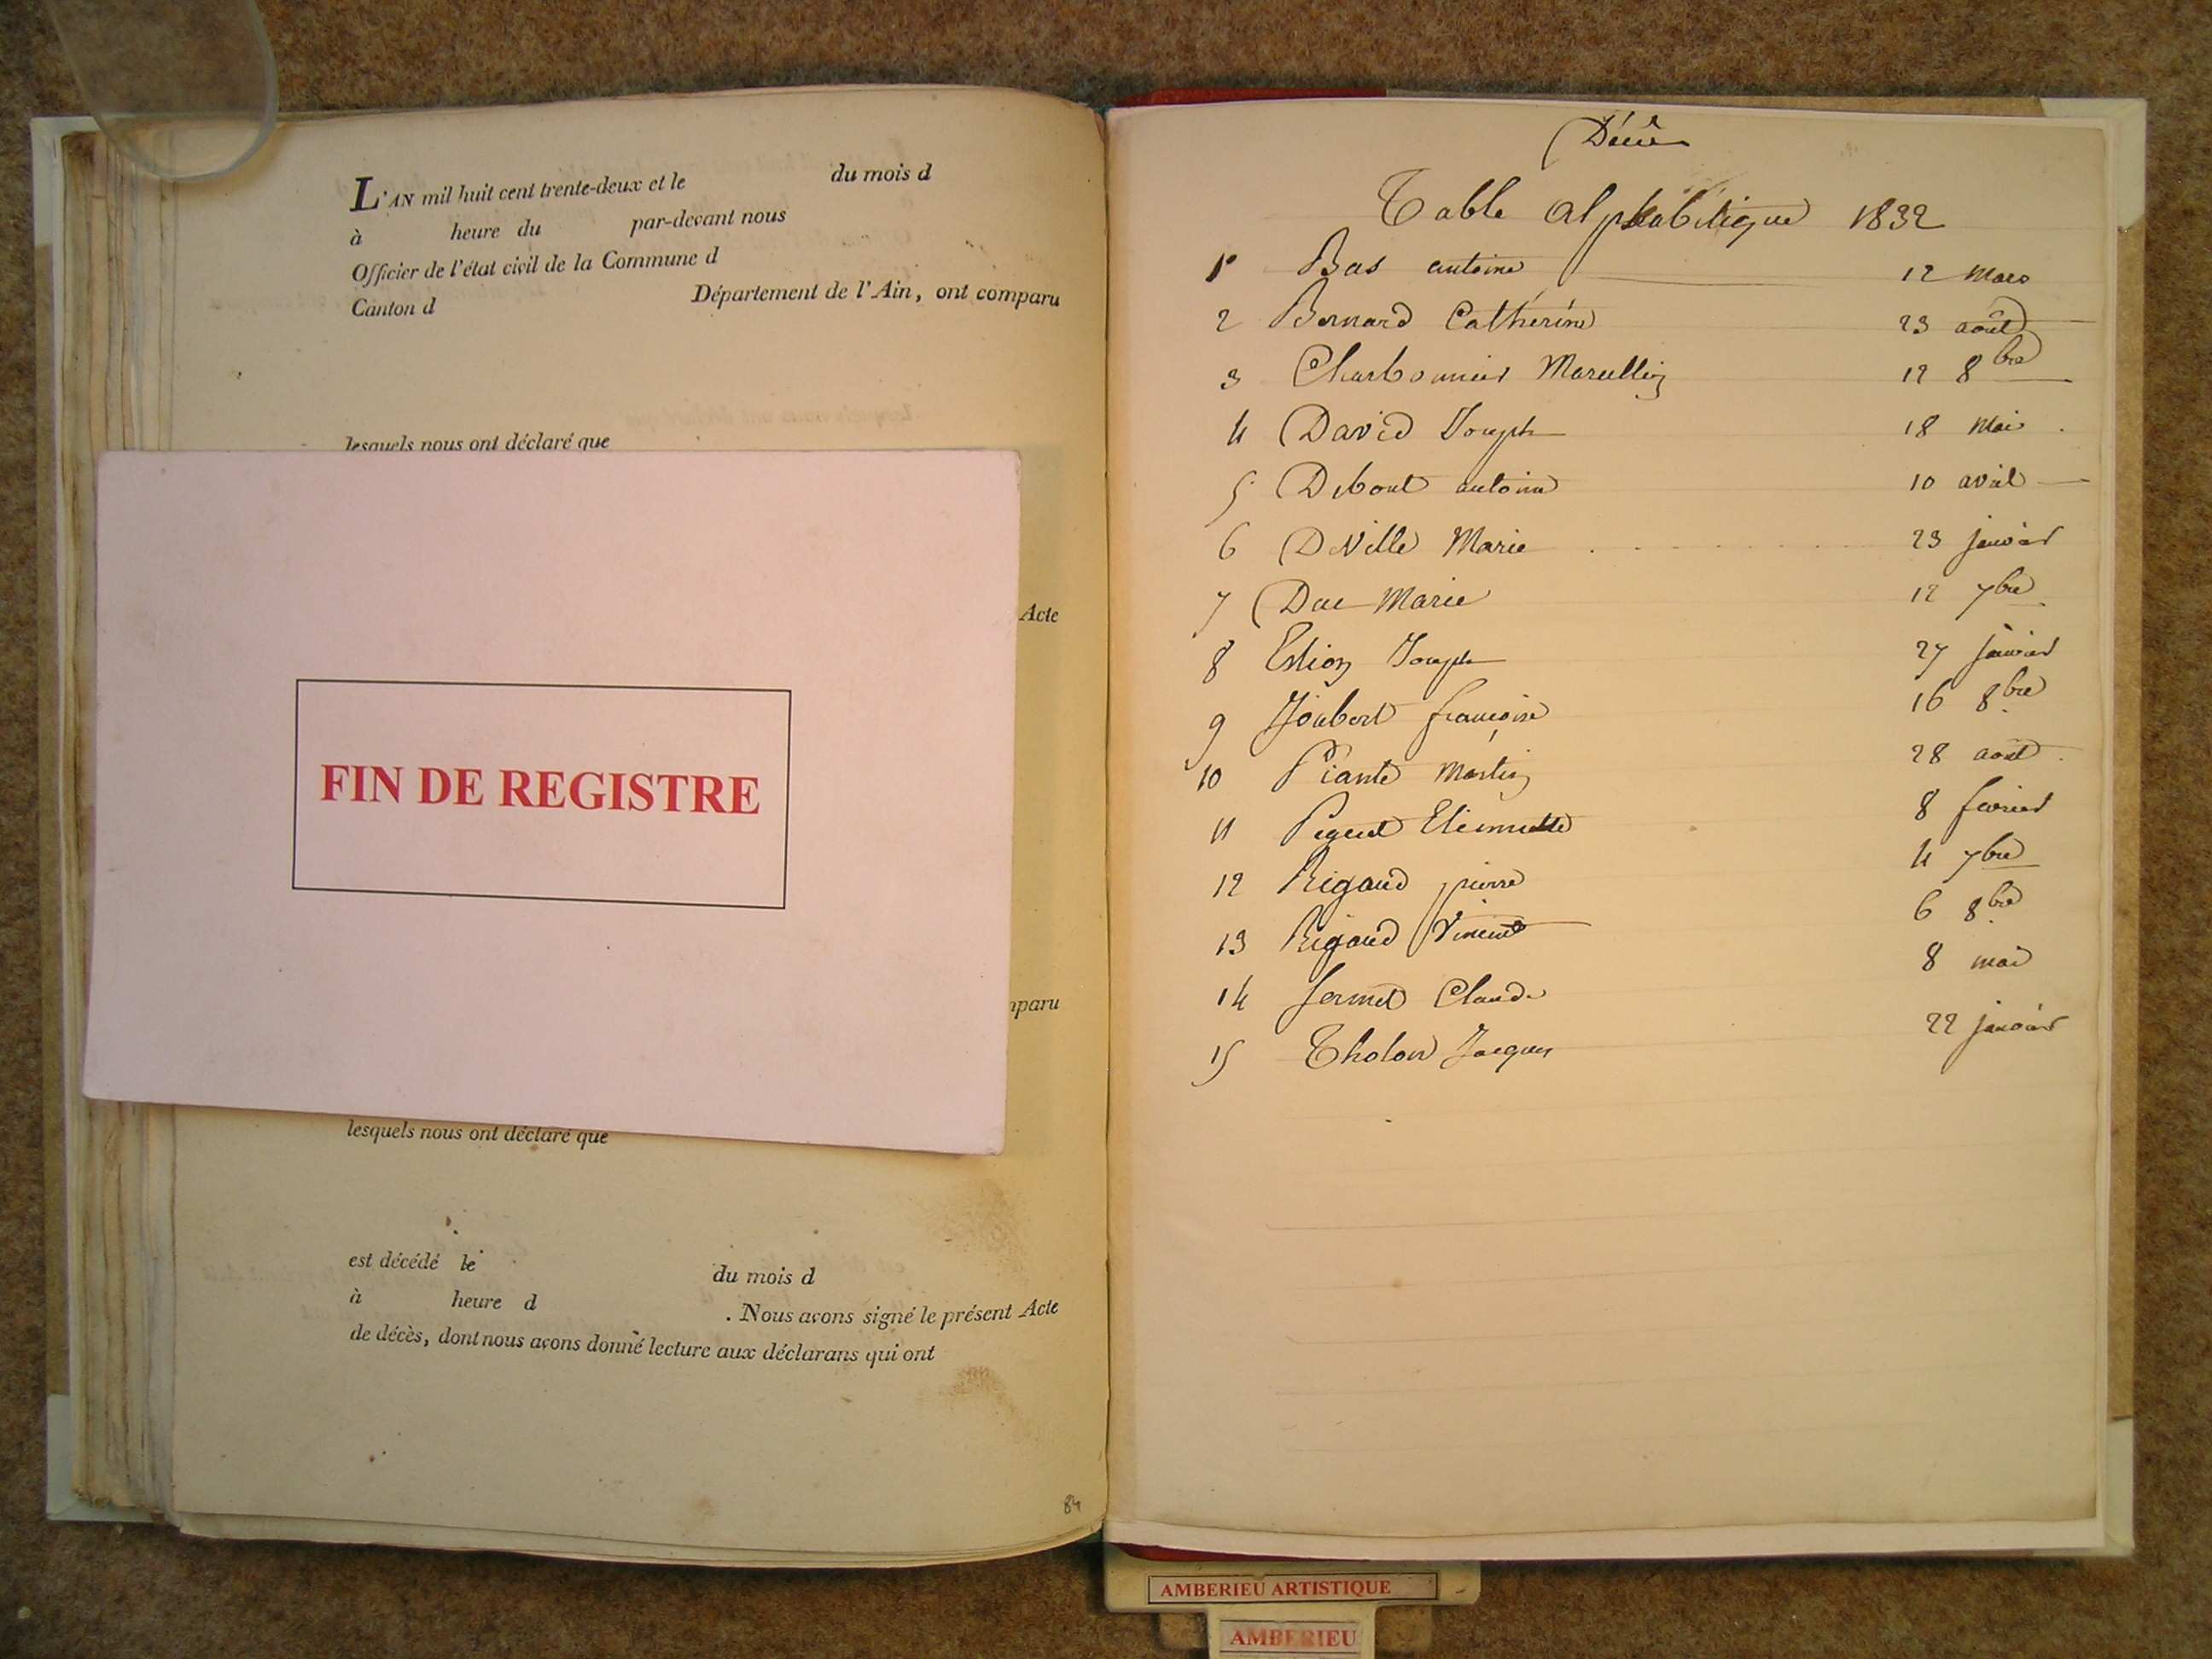 L'AN mil huit cent trente-deux et le du mois d
à heure du par-devant nous
Officier de l'état civil de la Commune d
Canton d Département de l'Ain, ont comparu
lesquels nous ont déclaré que
Acte
FIN DE REGISTRE
mparu
lesquels nous ont déclaré que
est décédé le du mois d
à heure d . Nous avons signé le présent Acte
de décès, dont nous avons donné lecture aux déclarans qui ont
84
Décès
Table alphabétique 1832
1° Bas antoine 12 Mars
2 Bernard Catherine 23 août
3 Charbonnier Marcellin 12 8bre
4 David Joseph 18 Mai
5 Debout antoine 10 avril
6 DeVille Marie 23 janvier
7 Duc Marie 12 7bre
8 Joseph 27 janvier
9 Joubert françoise 16 8bre
10 Piante Martin 28 août
11 Etiennette 8 fevrier
12 Rigaud pierre 4 7bre
13 Rigaud Vincent 6 8bre
14 fermet Claude 8 mai
15 Tholon Jacques 22 janvier
AMBERIEU ARTISTIQUE
AMBERIEU